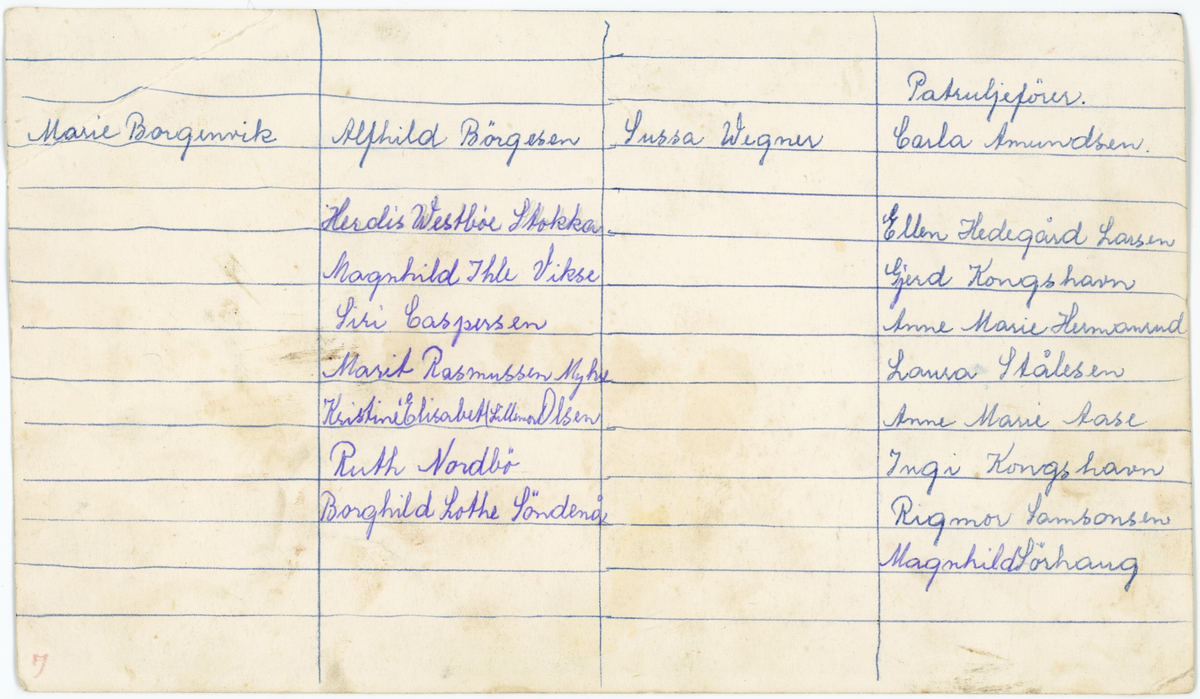 Patruljefører.
Marie Borgenvik Alfhild Börgesen Sussa Wegner Carla Amundsen.
Herdis Westbøe Stokka Ellen Hedegård Larsen
Magnhild Ihle Vikse Gjerd Kongshavn
Siri Caspersen Anne Marie Hermansrud
Marit Rasmussen Myhre Laura Stålesen
Kristine Elisabet (Lillemor) Olsen Anne Marie Aase
Ruth Nordbö Ingi Kongshavn
Borghild Lothe Söndenå Rigmor Samsonsen
Magnhild Sörhaug
7